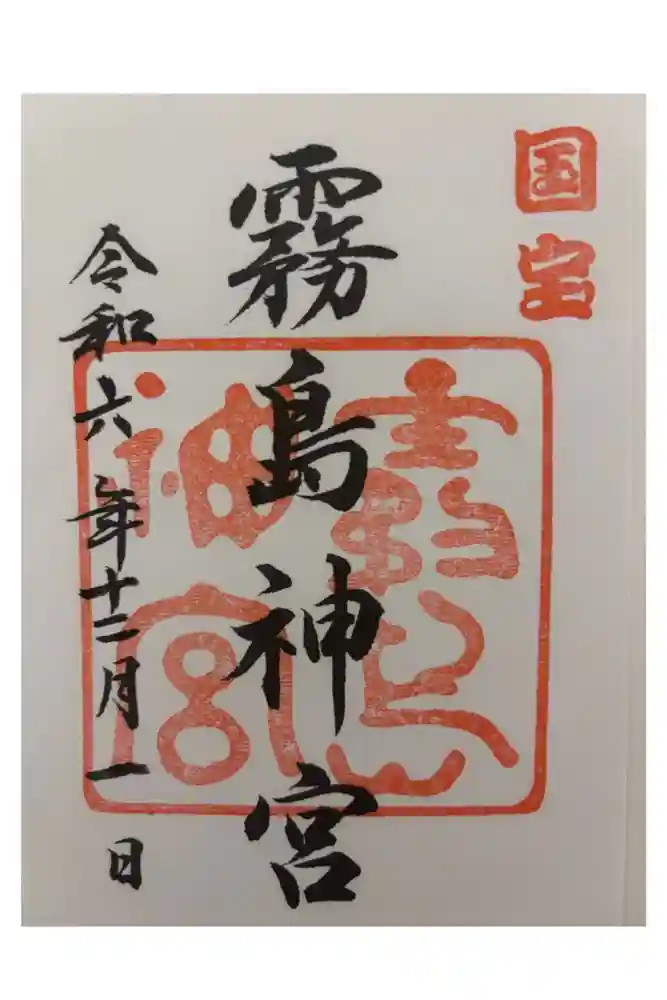 国宝
霧島神宮
霧島神宮
令和六年十二月一日